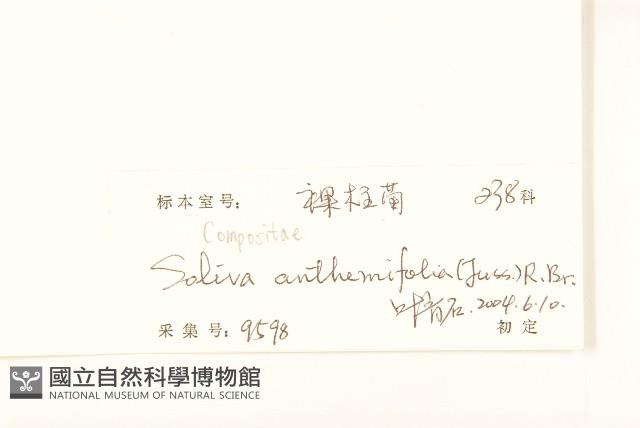 标本室号： 裸柱菊 238科
Compositae
Soliva anthemifolia (Juss.) R.Br.
叶育石. 2004.6.10.
采集号: 9598 初定
國立自然科學博物館
NATIONAL MUSEUM OF NATURAL SCIENCE